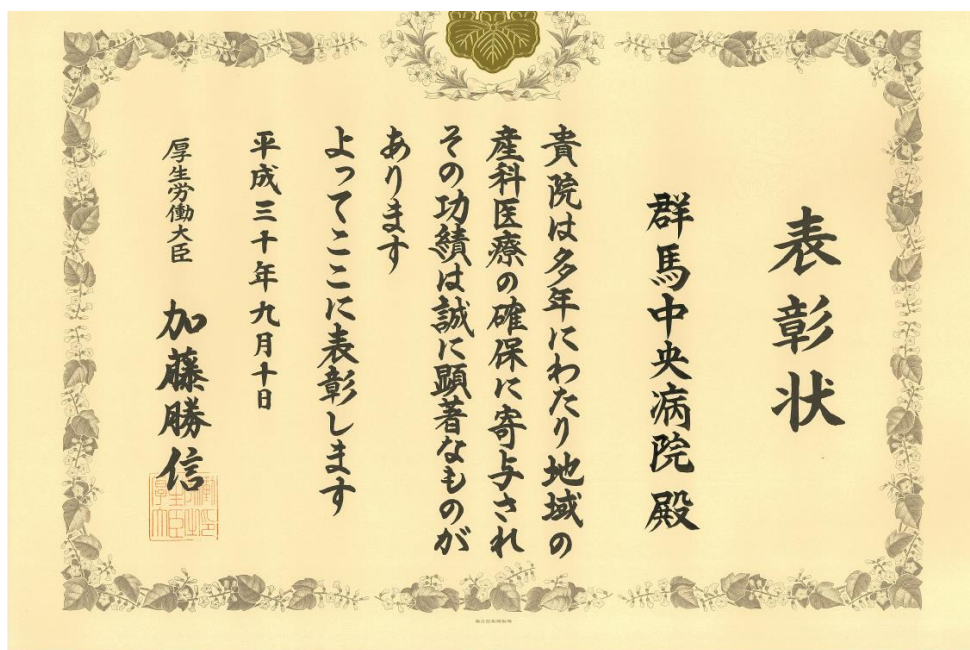 表彰状
群馬中央病院殿
貴院は多年にわたり地域の
産科医療の確保に寄与され
その功績は誠に顕著なものが
あります
よってここに表彰します
平成三十年九月十日
厚生労働大臣 加藤勝信